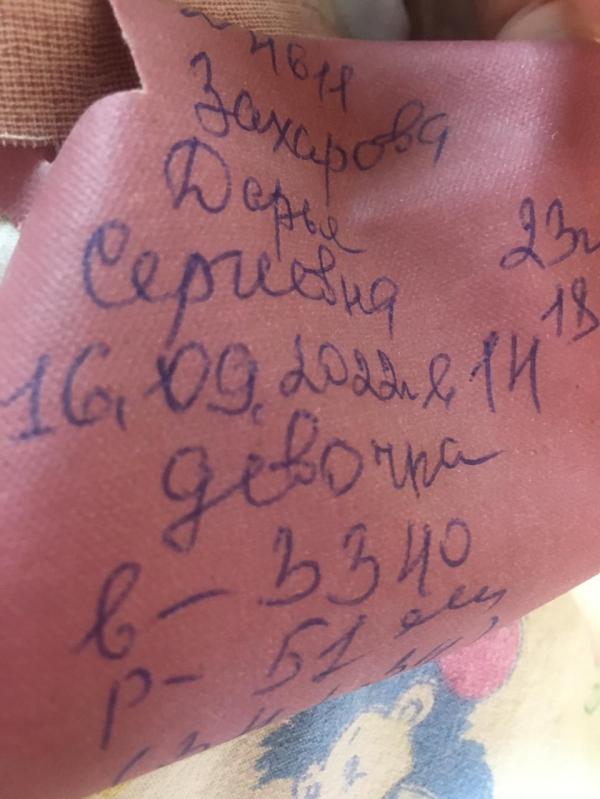 4611
Захарова
Дарья
Сергеевна
23
18
16.09.2022г в 14
девочка
в - 3340
р - 51 см